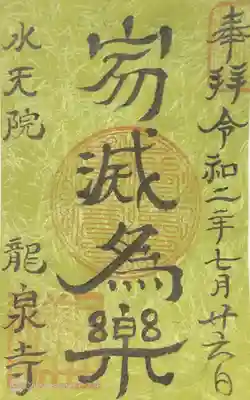 奉拝 令和二年七月廿六日
寂滅為樂
水天院 龍泉寺